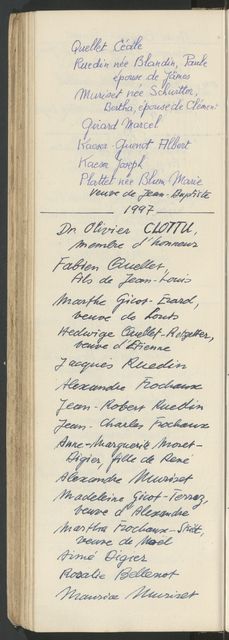 Quellet Cécile
Ruedin née Blandin, Paule
épouse de James
Muriset née Schwitter,
Bertha, épouse de Clément
Girard Marcel
Kaeser-Guenot Albert
Kaeser Joseph
Plattet née Blum Marie
veuve de Jean-Baptiste
1997
Dr. Olivier CLOTTU,
membre d'honneur
Fabien Quellet,
fils de Jean-Louis
Marthe Gicot-Erard,
veuve de Louis
Hedwige Quellet-Rotzetter,
veuve d'Etienne
Jacques Ruedin
Alexandre Frochaux
Jean-Robert Ruedin
Jean-Charles Frochaux
Anne-Marguerite Monet-
Digier, fille de René
Alexandre Muriset
Madeleine Gicot-Terraz,
veuve d'Alexandre
Martha Frochaux-Stött,
veuve de Noël
Aimé Digier
Rosalie Bellenot
Maurice Muriset